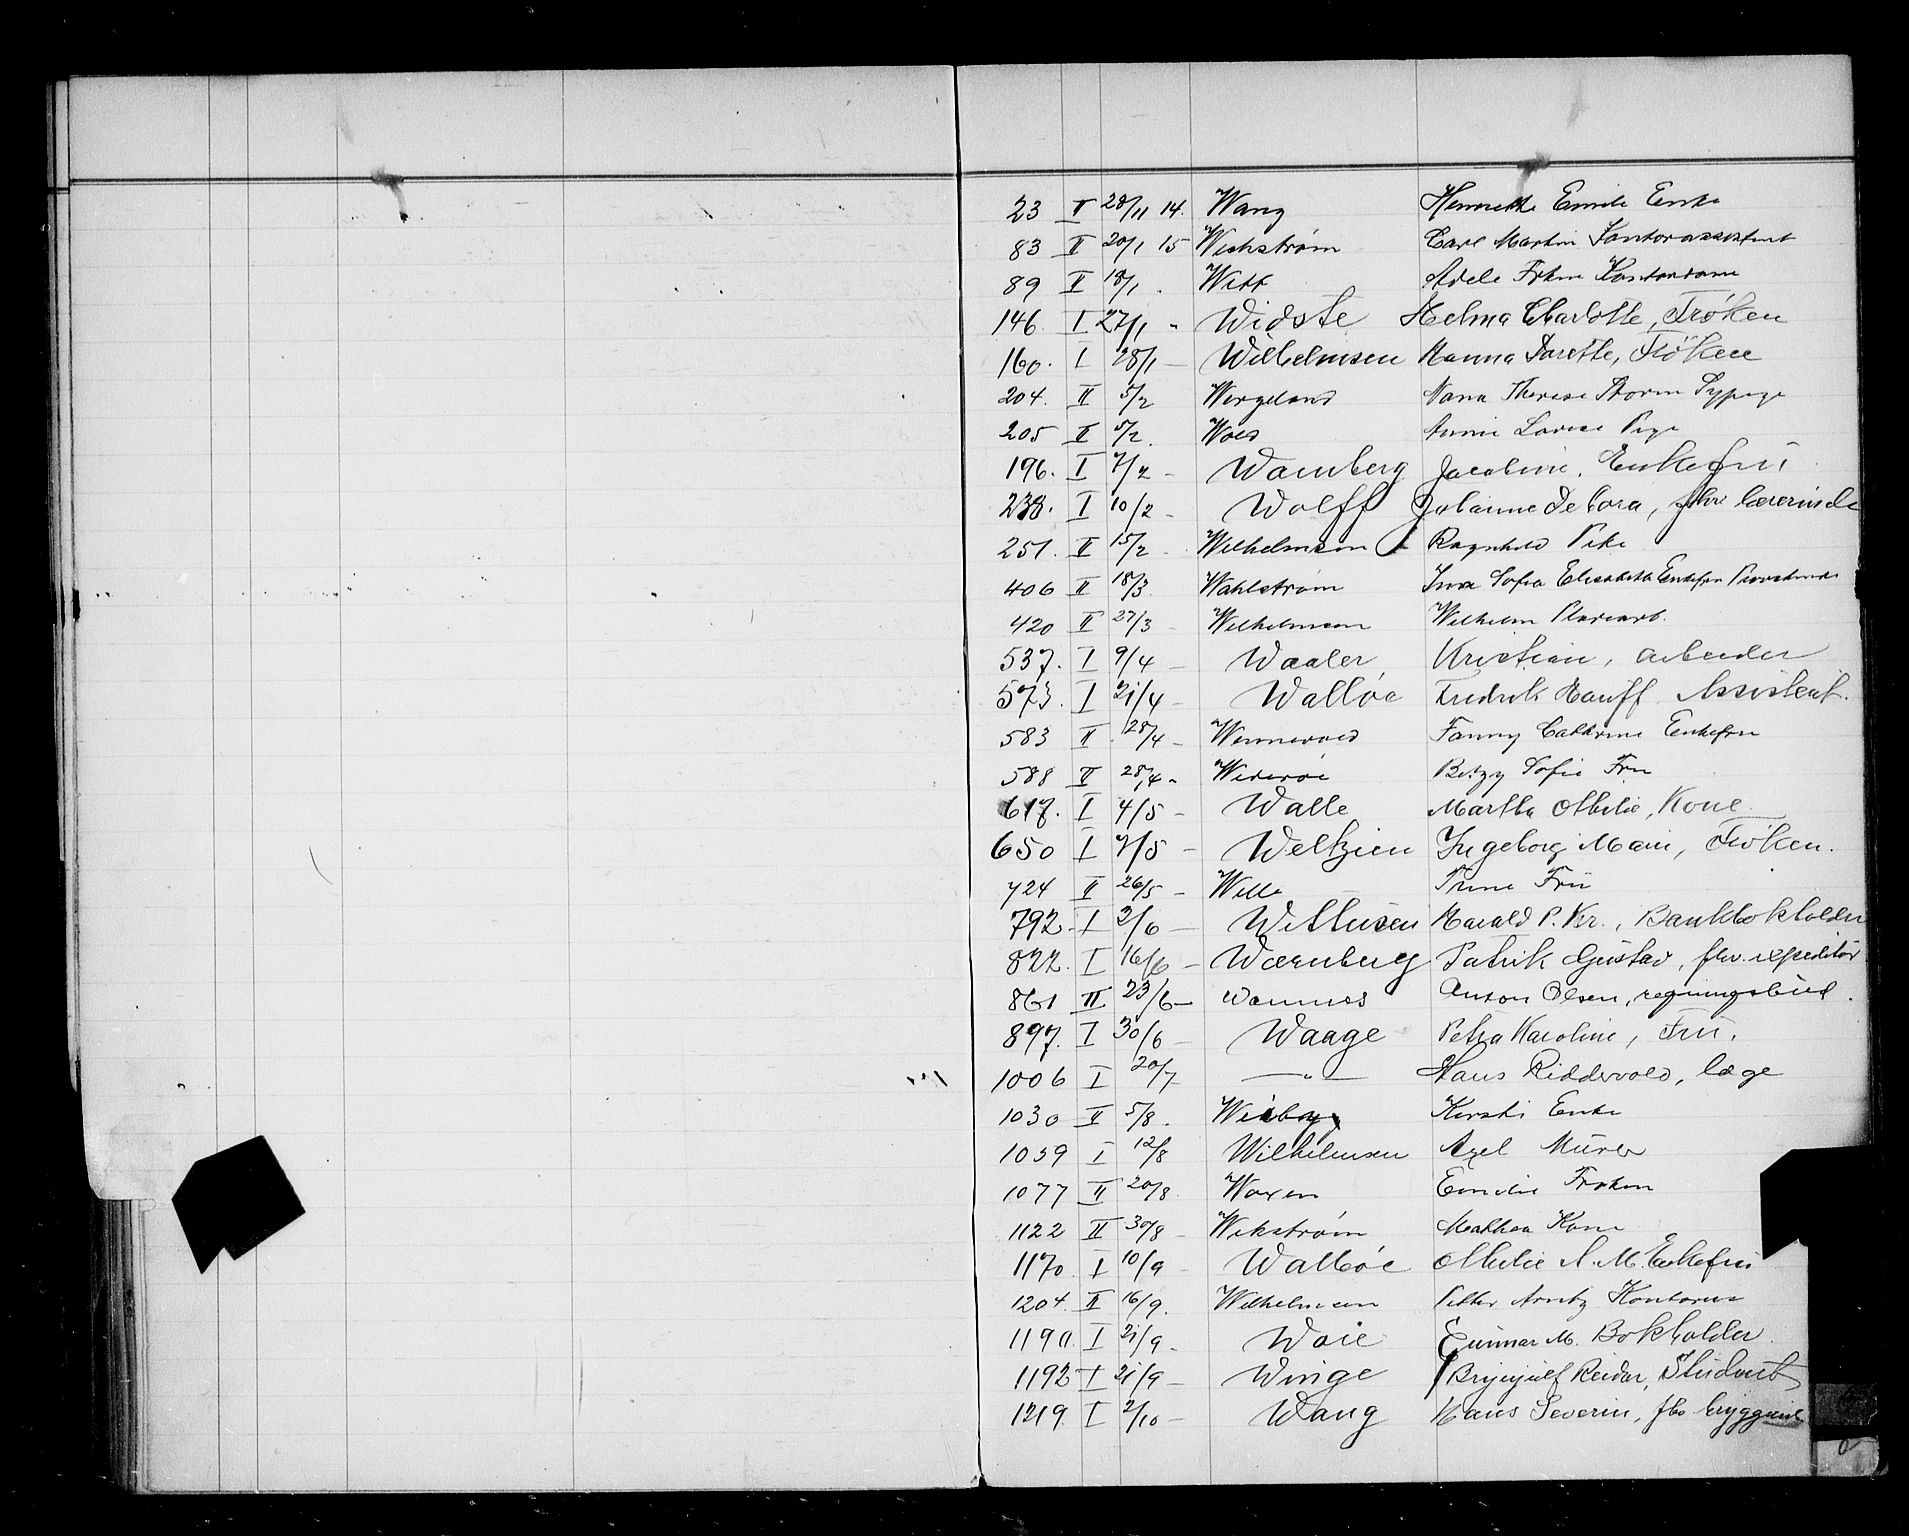 23 II 28/11 14. Wang Henriette Emilie Enke
83 II 20/1 15 Wickstrøm Carl Martin Kontorassistent
89 II 18/1 . Witt Adele Frøken Kontordame
146. I 27/1 " Widste Helma Charlotte, Frøken
160. I 28/1 — Wilhelmsen Hanna Dorette, Frøken
204. II 5/2 Wergeland Nana Therese Storm Sypige
205 II 5/2. Wold Annie Lovise Pige
196. I 7/2 — Wamberg Jacobine, Enkefru
238. I 10/2 — Wolff Johanne Debora, fhv lærerinde
251. II 15/2 — Wilhelmsen Ragnhild Pike
406 II 18/3. Wahlstrøm Sofia Elisabeth Enkefru
420 II 27/3 — Wilhelmsen Wilhelm
537. I 9/4 — Waaler Kristian, arbeider
573. I 21/4 — Walløe Fredrik Hauff Assistent.
583 II 28/4 — Wennevold Fanny Cathrine Enkefru
588 II 28/4 " Widerøe Betzy Sofie Fru
617. I 4/5 — Walle Martha Othilie, Kone
650 I 7/5 — Weltzien Ingeborg Marie, Frøken.
724 II 26/5 — Wille Trine Frü
792. I 2/6 — Willusen Harald P. Kr., Bankbokholder
822. I 16/6 — Wærnberg Patrik Gustav, fhv. expeditør
861 II 23/6 — Wannus Anton Olsen, regningsbud.
897. I 30/6 — Waage Petra Karoline, Fru.
1006 I 20/7 — " — Hans Riddervold, læge
1030 II 5/8. Wiiby Kersti Enke
1059 I 12/8 Wilhelmsen Axel Mürer
1077 II 20/8. Woxen Emilie Frøken
1122 II 30/8 — Wikstrøm Mathea Kone
1170 I 10/9 — Walløe Othilie A. M. Enkefru
1204. II 16/9. Wilhelmsen Petter Arntz
1190. I 21/9 — Woie Gunnar M. Bokholder.
1192 I 21/9 — Winge Brynjulf Reidar, Student
1219 I 2/10 — Wang Hans Severin, fhv.